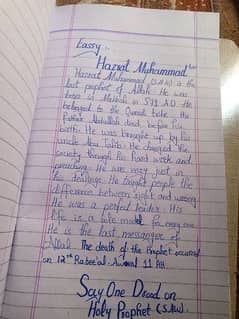 Eassy
Hazrat Muhammad
Hazrat Muhammad (S.A.W) is the
last prophet of Allah. He was
born in Makkah in 571 A.D. He
belonged to the Quraish tribe. His
father Abdullah died before his
birth. He was brought up by his
uncle Abu Talib. He changed the
society through his hard work and
preaching. He was very just in
his dealings. He taught people the
difference between right and wrong.
He was a perfect leader. His
life is a role model for every one.
He is the last messenger of
Allah. The death of the Prophet occurred
on 12th Rabee'al-Awwal 11 AH
Say One Drood on
Holy Prophet (S.A.W).